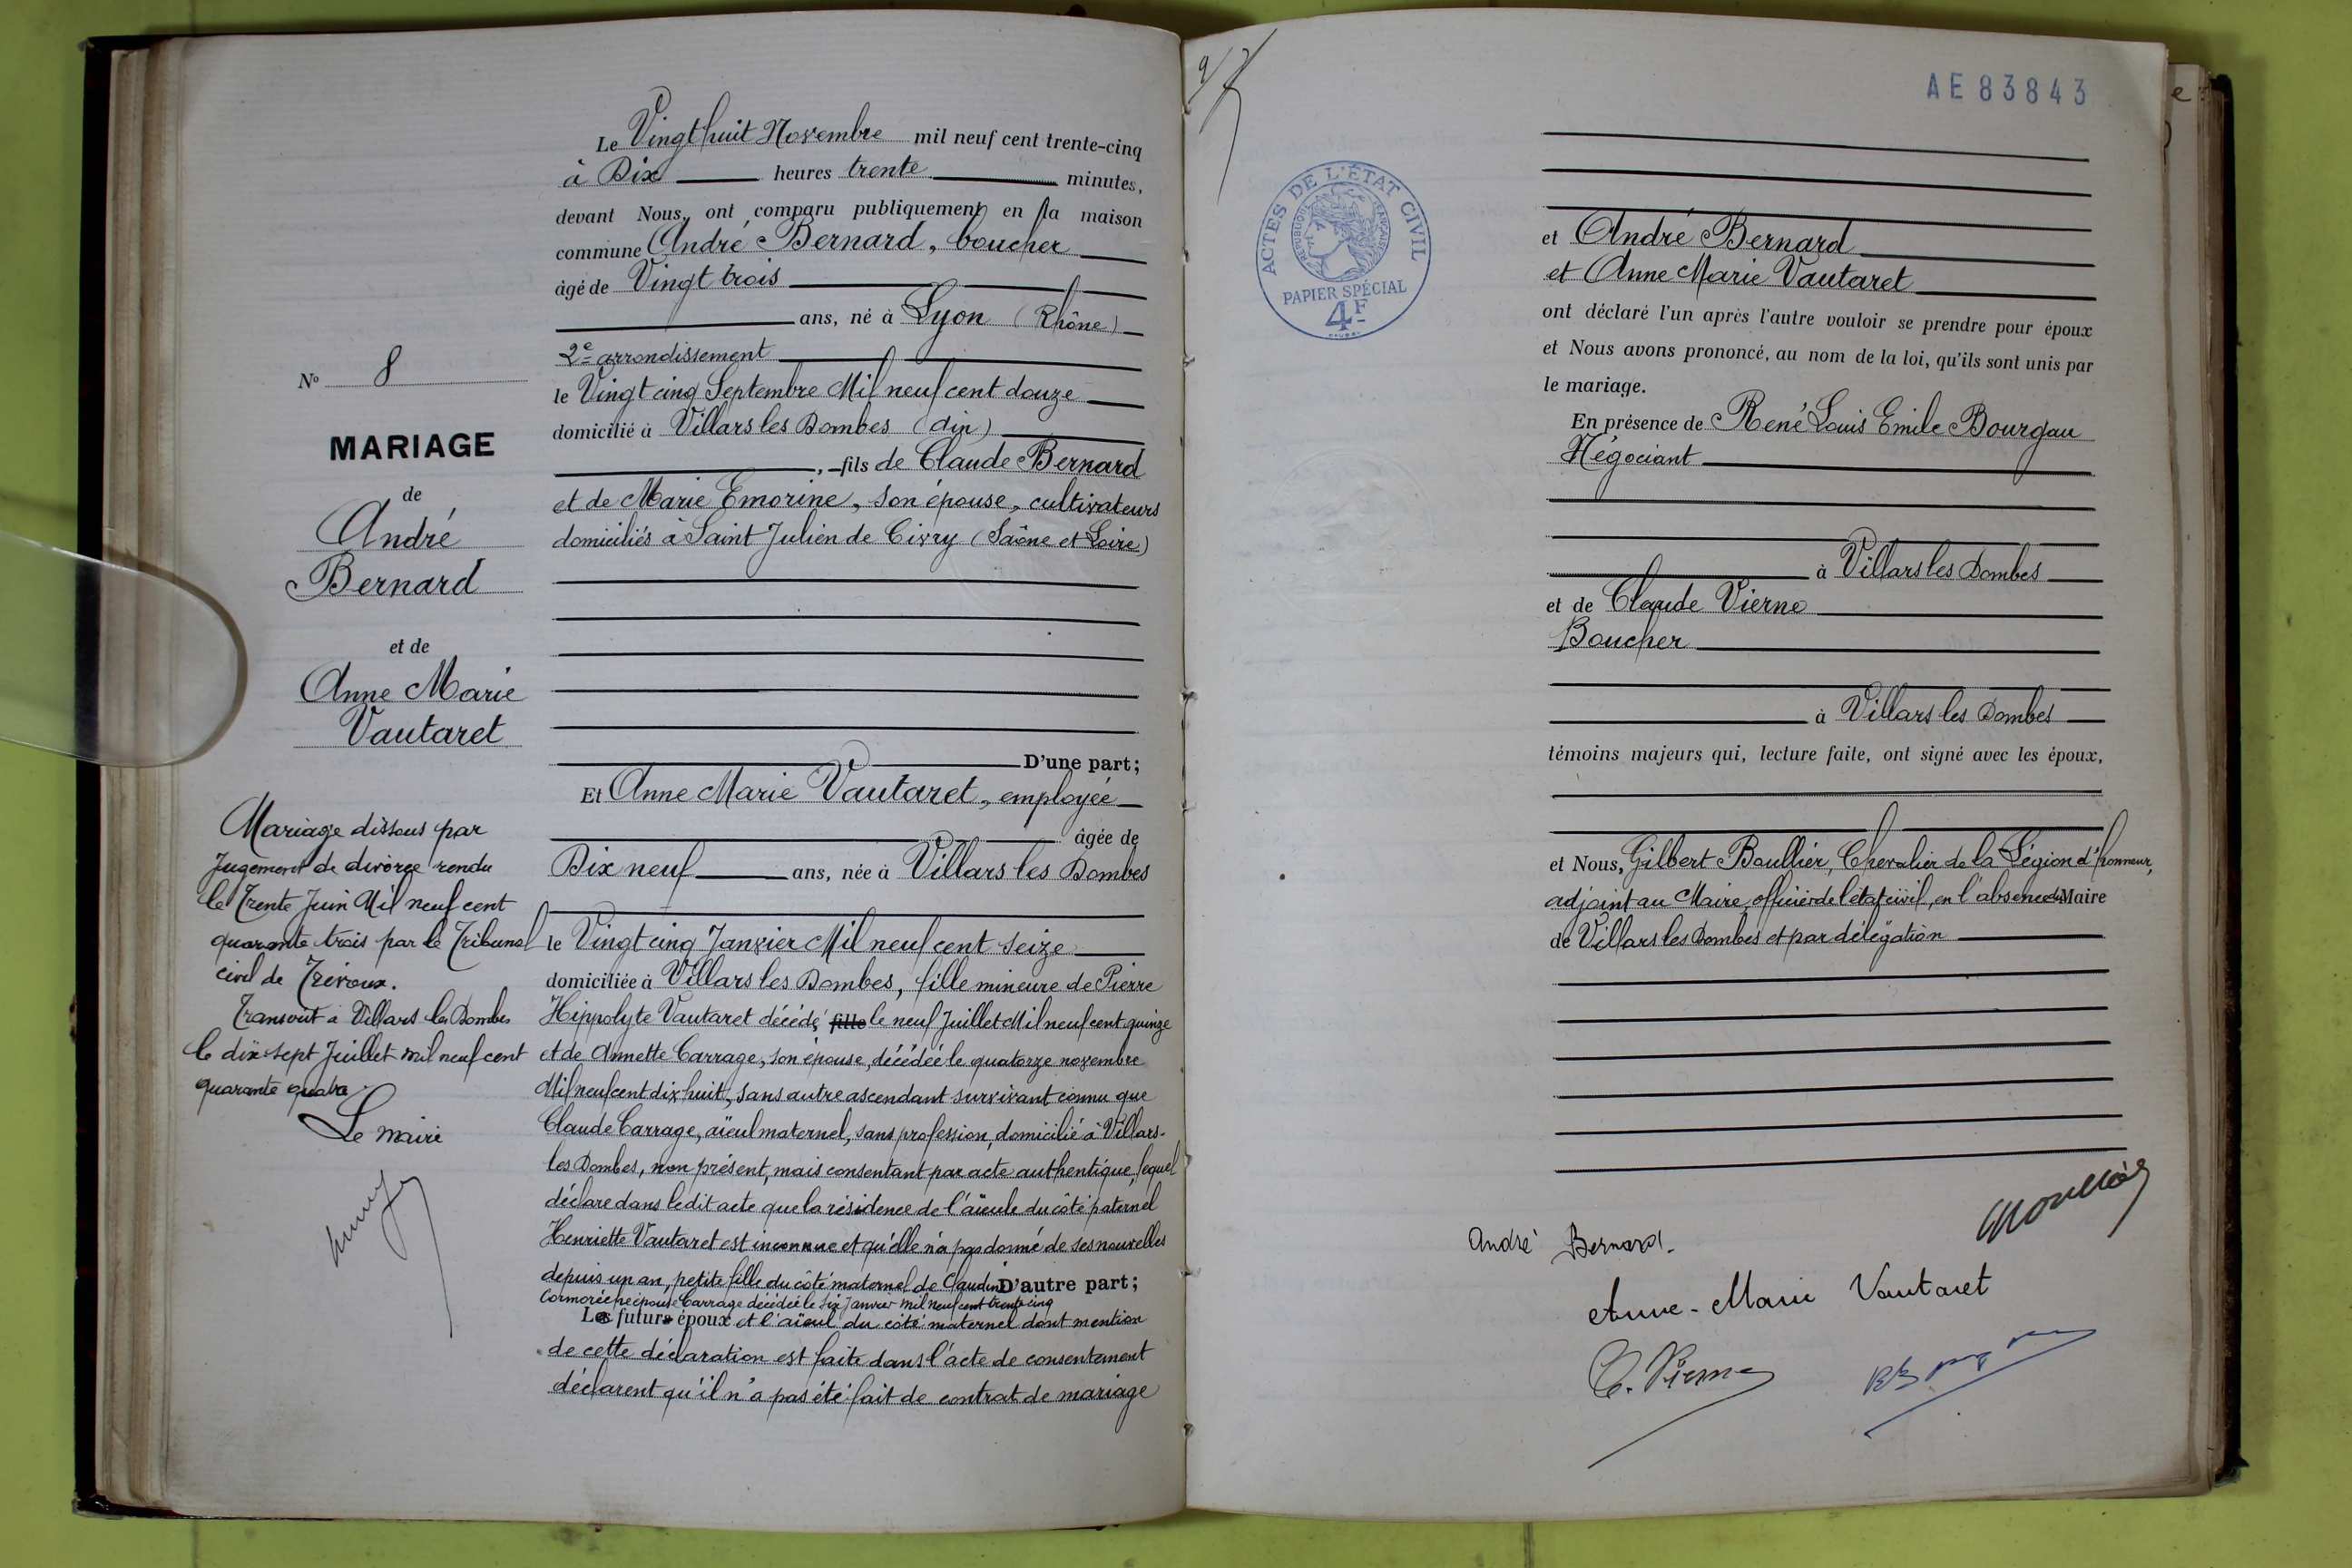 Le Vingt huit Novembre mil neuf cent trente-cinq
à Dix heures trente minutes,
devant Nous, ont comparu publiquement en la maison
commune André Bernard, boucher
âgé de Vingt trois
ans, né à Lyon (Rhône)
2e arrondissement
le Vingt cinq Septembre Mil neuf cent douze
domicilié à Villars les Dombes (Ain)
, fils de Claude Bernard
et de Marie Emorine, son épouse, cultivateurs
domiciliés à Saint Julien de Civry (Saône et Loire)
D'une part;
Et Anne Marie Vautaret, employée
âgée de
Dix neuf ans, née à Villars les Dombes
le Vingt cinq Janvier Mil neuf cent seize
domiciliée à Villars les Dombes, fille mineure de Pierre
Hippolyte Vautaret décédé fille le neuf Juillet Mil neuf cent quinze
et de Annette Carrage, son épouse, décédée le quatorze novembre
Mil neuf cent dix huit, sans autre ascendant survivant connu que
Claude Carrage, aïeul maternel, sans profession, domicilié à Villars-
les Dombes, non présent, mais consentant par acte authentique, lequel
déclare dans ledit acte que la résidence de l'aïeule du côté paternel
Henriette Vautaret est inconnue et qu'elle n'a pas donné de ses nouvelles
depuis un an, petite fille du côté maternel de Claudine D'autre part;
épouse Carrage décédée le six Janvier mil neuf cent trente cinq
Les futurs époux et l'aïeul du côté maternel dont mention
de cette déclaration est faite dans l'acte de consentement
déclarent qu'il n'a pas été fait de contrat de mariage
No 8
MARIAGE
de
André
Bernard
et de
Anne Marie
Vautaret
Mariage dissous par
Jugement de divorce rendu
le Trente Juin Mil neuf cent
quarante trois par le Tribunal
civil de Trévoux.
Transcrit à Villars les Dombes
le dix-sept Juillet mil neuf cent
quarante quatre
Le maire
AE 83843
ACTES DE L'ÉTAT CIVIL
RÉPUBLIQUE FRANÇAISE
PAPIER SPÉCIAL
4F
et André Bernard
et Anne Marie Vautaret
ont déclaré l'un après l'autre vouloir se prendre pour époux
et Nous avons prononcé, au nom de la loi, qu'ils sont unis par
le mariage.
En présence de René Louis Emile Bourgau
Négociant
à Villars les Dombes
et de Claude Vierne
Boucher
à Villars les Dombes
témoins majeurs qui, lecture faite, ont signé avec les époux,
et Nous, Gilbert Boullier, Chevalier de la Légion d'honneur,
adjoint au Maire, officier de l'état civil, en l'absence du Maire
de Villars les Dombes et par délégation
André Bernard
Anne-Marie Vautaret
C. Vierne